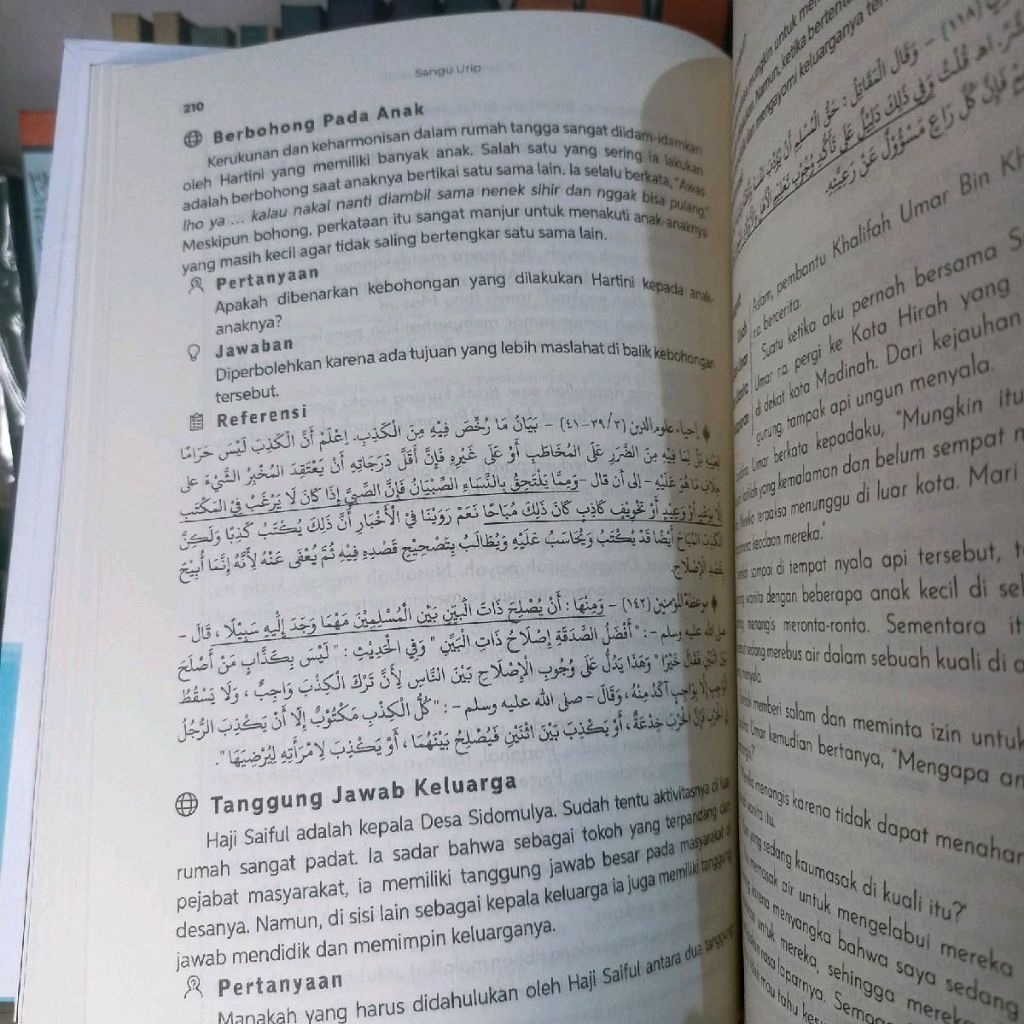 Sangu Urip
210
Berbohong Pada Anak
Kerukunan dan keharmonisan dalam rumah tangga sangat diidam-idamkan
oleh Hartini yang memiliki banyak anak. Salah satu yang sering ia lakukan
adalah berbohong saat anaknya bertikai satu sama lain. Ia selalu berkata, "Awas
lho ya ... kalau nakal nanti diambil sama nenek sihir dan nggak bisa pulang."
Meskipun bohong, perkataan itu sangat manjur untuk menakuti anak-anaknya
yang masih kecil agar tidak saling bertengkar satu sama lain.
Pertanyaan
Apakah dibenarkan kebohongan yang dilakukan Hartini kepada anak-
anaknya?
Jawaban
Diperbolehkan karena ada tujuan yang lebih maslahat di balik kebohongan
tersebut.
Referensi
إحياء علوم الدين (٣/ ٣٩-٤١) - بَيَانُ مَا رُخِّصَ فِيْهِ مِنَ الْكَذِبِ. اِعْلَمْ أَنَّ الْكَذِبَ لَيْسَ حَرَامًا
لِعَيْنِهِ بَلْ لِمَا فِيْهِ مِنَ الضَّرَرِ عَلَى الْمُخَاطَبِ أَوْ عَلَى غَيْرِهِ فَإِنَّ أَقَلَّ دَرَجَاتِهِ أَنْ يَعْتَقِدَ الْمُخْبَرُ الشَّيْءَ عَلَى
خِلَافِ مَا هُوَ عَلَيْهِ - إلى أن قال - وَمِمَّا يَلْتَحِقُ بِالنِّسَاءِ الصِّبْيَانُ فَإِنَّ الصَّبِيَّ إِذَا كَانَ لَا يَرْغَبُ فِي الْمَكْتَبِ
إِلَّا بِوَعْدٍ أَوْ وَعِيْدٍ أَوْ تَخْوِيْفٍ كَاذِبٍ كَانَ ذَلِكَ مُبَاحًا نَعَمْ رَوَيْنَا فِيْ الْأَخْبَارِ أَنَّ ذَلِكَ يُكْتَبُ كَذِبًا وَلَكِنَّ
الْكَذِبَ الْمُبَاحَ أَيْضًا قَدْ يُكْتَبُ وَيُحَاسَبُ عَلَيْهِ وَيُطَالَبُ بِتَصْحِيْحِ قَصْدِهِ فِيْهِ ثُمَّ يُعْفَى عَنْهُ لِأَنَّهُ إِنَّمَا أُبِيْحَ
بِقَصْدِ الْإِصْلَاحِ.
موعظة المؤمنين (١٤٢) - وَمِنْهَا : أَنْ يُصْلِحَ ذَاتَ الْبَيْنِ بَيْنَ الْمُسْلِمِيْنَ مَهْمَا وَجَدَ إِلَيْهِ سَبِيْلًا ، قَالَ -
صلى الله عليه وسلم - : "أَفْضَلُ الصَّدَقَةِ إِصْلَاحُ ذَاتِ الْبَيْنِ" وَفِي الْحَدِيْثِ : "لَيْسَ بِكَذَّابٍ مَنْ أَصْلَحَ
بَيْنَ اثْنَيْنِ فَقَالَ خَيْرًا" وَهَذَا يَدُلُّ عَلَى وُجُوْبِ الْإِصْلَاحِ بَيْنَ النَّاسِ لِأَنَّ تَرْكَ الْكَذِبِ وَاجِبٌ ، وَلَا يَسْقُطُ
الْوَاجِبُ إِلَّا بِوَاجِبٍ آكَدَ مِنْهُ ، وَقَالَ - صلى الله عليه وسلم - : "كُلُّ الْكَذِبِ مَكْتُوْبٌ إِلَّا أَنْ يَكْذِبَ الرَّجُلُ
فِي الْحَرْبِ فَإِنَّ الْحَرْبَ خِدْعَةٌ ، أَوْ يَكْذِبَ بَيْنَ اثْنَيْنِ فَيُصْلِحَ بَيْنَهُمَا ، أَوْ يَكْذِبَ لِامْرَأَتِهِ لِيُرْضِيَهَا".
Tanggung Jawab Keluarga
Haji Saiful adalah kepala Desa Sidomulya. Sudah tentu aktivitasnya di luar
rumah sangat padat. Ia sadar bahwa sebagai tokoh yang terpandang dan
pejabat masyarakat, ia memiliki tanggung jawab besar pada masyarakat di
desanya. Namun, di sisi lain sebagai kepala keluarga ia juga memiliki tanggung
jawab mendidik dan memimpin keluarganya.
Pertanyaan
Manakah yang harus didahulukan oleh Haji Saiful antara dua tanggung
Namun, ketika
mengayomi keluarganya
(١١٨) - وَقَالَ الْمَقَاتِلُ : حَقُّ الْمُسْلِمِ أَنْ
اهـ قُلْتُ وَفِي ذَلِكَ دَلِيْلٌ عَلَى
فَإِنَّ كُلَّ رَاعٍ مَسْؤُوْلٌ عَنْ رَعِيَّتِهِ.
pembantu Khalifah Umar Bin
bercerita.
Suatu ketika aku pernah bersama
Umar ra. pergi ke Kota Hirah yang
di dekat kota Madinah. Dari kejauhan
gunung, tampak api ungun menyala.
Umar berkata kepadaku, "Mungkin itu
yang kemalaman dan belum sempat
terpaksa menunggu di luar kota. Mari
keadaan mereka."
sampai di tempat nyala api tersebut,
wanita dengan beberapa anak kecil di
menangis meronta-ronta. Sementara
sedang merebus air dalam sebuah kuali di
memberi salam dan meminta izin untuk
Umar kemudian bertanya, "Mengapa
menangis karena tidak dapat menahan
wanita itu.
yang sedang kaumasak di kuali itu?"
memasak air untuk mengelabui mereka
karena menyangka bahwa saya sedang
untuk mereka, sehingga
rasa laparnya.